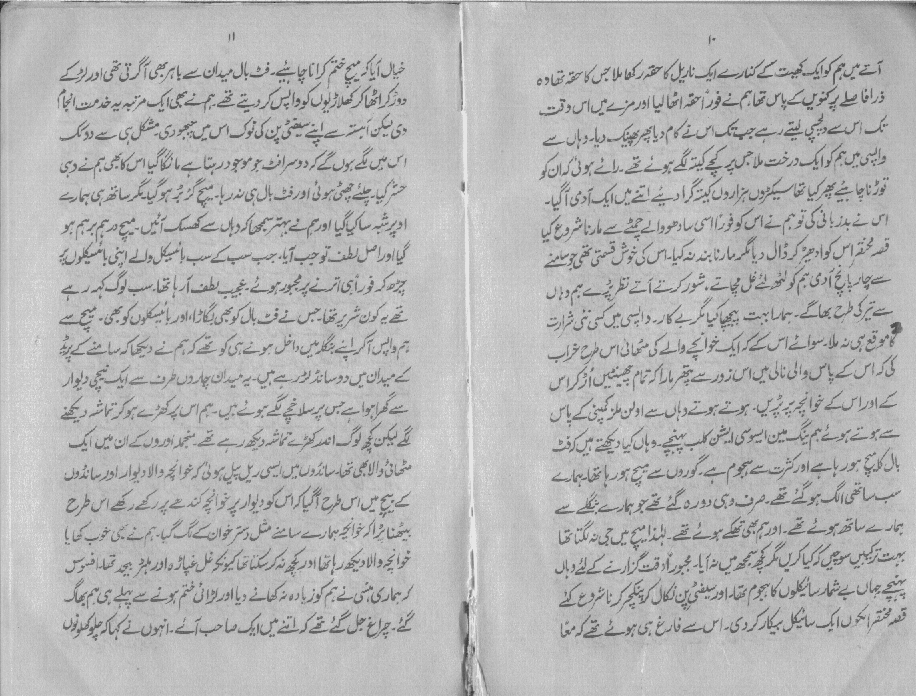 ۱۰
آتے میں ہم کو ایک کھیت کے کنارے ایک ناریل کا حقہ رکھا ملا جس کا حقہ تھا وہ
ذرا فاصلے پر کنویں کے پاس تھا ہم نے فوراً حقہ اٹھا لیا اور مزے میں اس وقت
تک اس سے دلچسپی لیتے رہے جب تک اس نے کام دیا پھر پھینک دیا۔ وہاں سے
واپسی میں ہم کو ایک درخت ملا جس پر کچے کیتھے لگے ہوئے تھے۔ رائے ہوئی کہ ان کو
توڑنا چاہئیے پھر کیا تھا سیکڑوں ہزاروں کیتھ گرا دیے اتنے میں ایک آدمی آ گیا۔
اس نے بدزبانی کی تو ہم نے اس کو فوراً اسی سادھو والے چمٹے سے مارنا شروع کیا
قصہ مختصر اس کو ادھیڑ کر ڈال دیا مگر مارنا بند نہ کیا۔ اس کی خوش قسمتی تھی جو سامنے
سے چار پانچ آدمی ہم کو لٹھ لئے غل مچاتے، شور کرتے آتے نظر پڑے ہم وہاں
سے تیر کی طرح بھاگے۔ ہمارا بہت پیچھا کیا مگر بے کار۔ واپسی میں کسی نئی شرارت
کا موقع ہی نہ ملا۔ سوائے اس کے کہ ایک خوانچے والے کی مٹھائی اس طرح خراب
کی کہ اس کے پاس والی نالی میں اس زور سے پتھر مارا کہ تمام چھینٹیں اُڑ کر اس
کے اور اس کے خوانچہ پر پڑیں۔ ہوتے ہوتے وہاں سے اولن ملز کمپنی کے پاس
سے ہوتے ہوئے ہم ینگ مین ایسوسی ایشن کلب پہنچے۔ وہاں کیا دیکھتے ہیں کہ فٹ
بال کا میچ ہو رہا ہے اور کثرت سے ہجوم ہے۔ گوروں سے میچ ہو رہا تھا۔ ہمارے
سب ساتھی الگ ہو گئے تھے۔ صرف وہی دو رہ گئے تھے جو ہمارے بنگلے سے
ہمارے ساتھ ہوئے تھے۔ اور ہم بھی تھکے ہوئے تھے۔ لہٰذا میچ میں جی نہ لگتا تھا
بہت ترکیبیں سوچیں کہ کیا کریں مگر کچھ سمجھ میں نہ آیا۔ مجبوراً وقت گزارنے کے لئے وہاں
پہنچے جہاں بے شمار سائیکلوں کا ہجوم تھا۔ اور سیفٹی پن نکال کر پنکچر کرنا شروع کئے
قصہ مختصر ایک ایک سائیکل بیکار کر دی۔ اس سے فارغ ہی ہوئے تھے کہ معاً
۱۱
خیال آیا کہ میچ ختم کرانا چاہئیے۔ فٹ بال میدان سے باہر بھی آ گرتی تھی اور لڑکے
دوڑ کر اٹھا کر کھلاڑیوں کو واپس کر دیتے تھے۔ ہم نے بھی ایک مرتبہ یہ خدمت انجام
دی لیکن آہستہ سے اپنے سیفٹی پن کی نوک اس میں چبھو دی۔ مشکل ہی سے دو کک
اس میں لگے ہوں گے کہ دوسرا فٹ جو موجود رہتا ہے مانگا گیا اس کا بھی ہم نے وہی
حشر کیا۔ چلئے چھٹی ہوئی اور فٹ بال ہی نہ رہا۔ میچ گڑبڑ ہو گیا۔ مگر ساتھ ہی ہمارے
اوپر شبہ سا کیا گیا اور ہم نے بہتر سمجھا کہ وہاں سے کھسک آئیں۔ میچ درہم برہم ہو
گیا اور اصل لطف تو جب آیا، جب سب کے سب بائیسکل والے اپنی بائیسکلوں پر
چڑھ کر فوراً ہی اترنے پر مجبور ہوئے۔ عجیب لطف آ رہا تھا۔ سب لوگ کہہ رہے
تھے یہ کون شریر تھا۔ جس نے فٹ بال کو بھی بگاڑا، اور بائیسکلوں کو بھی۔ میچ سے
ہم واپس آ کر اپنے بنگلہ میں داخل ہونے ہی کو تھے کہ ہم نے دیکھا کہ سامنے کے پریڈ
کے میدان میں دو سانڈ لڑ رہے ہیں۔ یہ میدان چاروں طرف سے ایک نیچی دیوار
سے گھرا ہوا ہے جس پر سلاخچے لگے ہوئے ہیں۔ ہم اس پر کھڑے ہو کر تماشہ دیکھنے
لگے لیکن کچھ لوگ اندر کھڑے تماشہ دیکھ رہے تھے۔ منجملہ اوروں کے ان میں ایک
مٹھائی والا بھی تھا۔ سانڈوں میں ایسی ریل پیل ہوئی کہ خوانچہ والا دیوار اور سانڈوں
کے بیچ میں اس طرح آ گیا کہ اس کو دیوار پر خوانچہ کندھے پر رکھے رکھے اس طرح
بیٹھنا پڑا کہ خوانچہ ہمارے سامنے مثل دسترخوان کے لگ گیا۔ ہم نے بھی خوب کھایا
خوانچہ والا دیکھ رہا تھا اور کچھ نہ کر سکتا تھا کیونکہ غل غپاڑہ اور ہلڑ بیحد تھا۔ افسوس
کہ ہماری ہنسی نے ہم کو زیادہ نہ کھانے دیا اور لڑائی ختم ہونے سے پہلے ہی ہم بھاگ
گئے۔ چراغ جل گئے تھے کہ اتنے میں ایک صاحب آئے۔ انہوں نے کہا کہ چلو کھلونوں